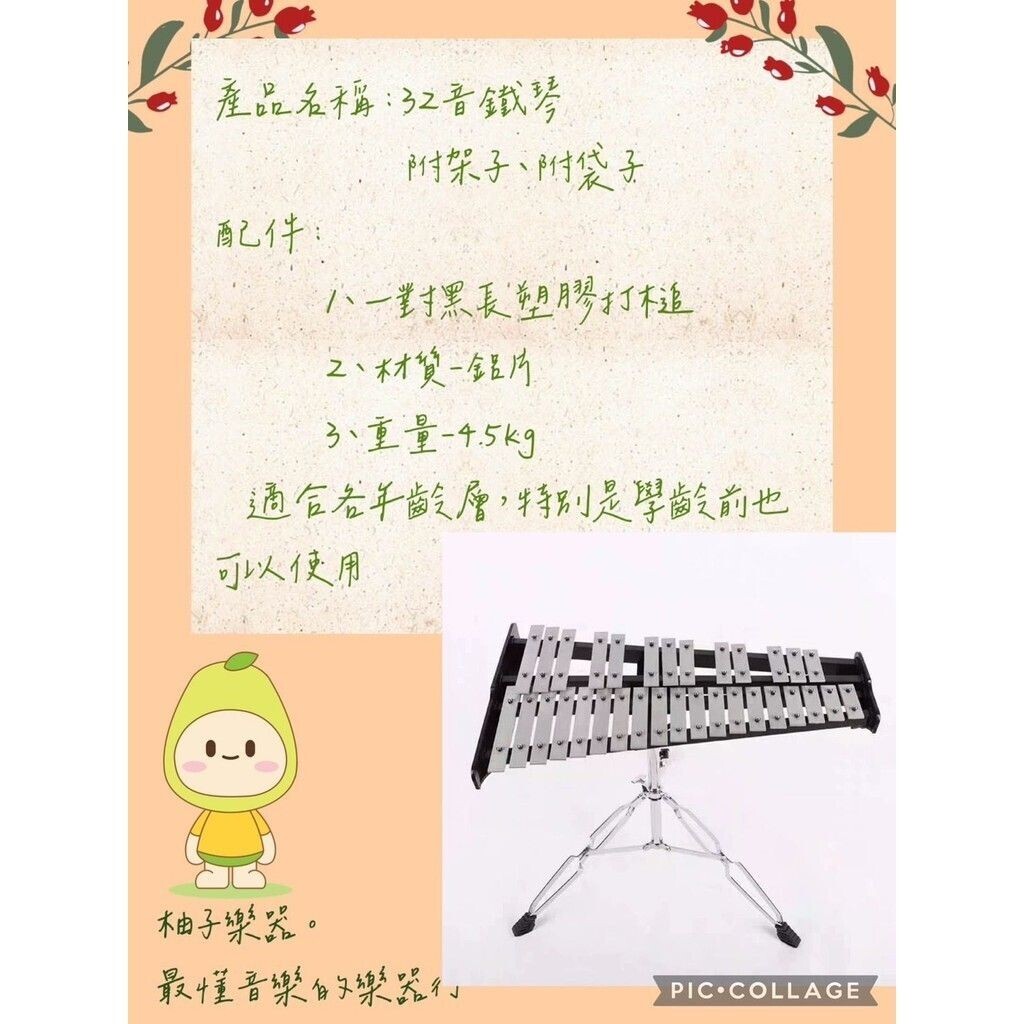 產品名稱:32音鐵琴
附架子、附袋子
配件:
1、一對黑長塑膠打槌
2、材質-鋁片
3、重量-4.5kg
適合各年齡層,特別是學齡前也
可以使用
柚子樂器。
最懂音樂的樂器行
PIC•COLLAGE